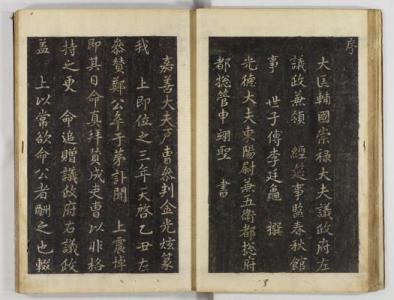 序
大匡輔國崇祿大夫議政府左
議政兼領 經筵事監春秋館
事 世子傅李廷龜 撰
光德大夫東陽尉兼五衛都緫府
都緫管申翊聖 書
嘉善大夫戶曹叅判金光炫篆
我 上即位之三年天啓乙丑左
叅贊鄭公卒于第訃聞 上震悼
即其日命真拜贊成吏曹以非格
持之更 命追贈議政府右議政
盖 上以常欲命公者酬之也輟